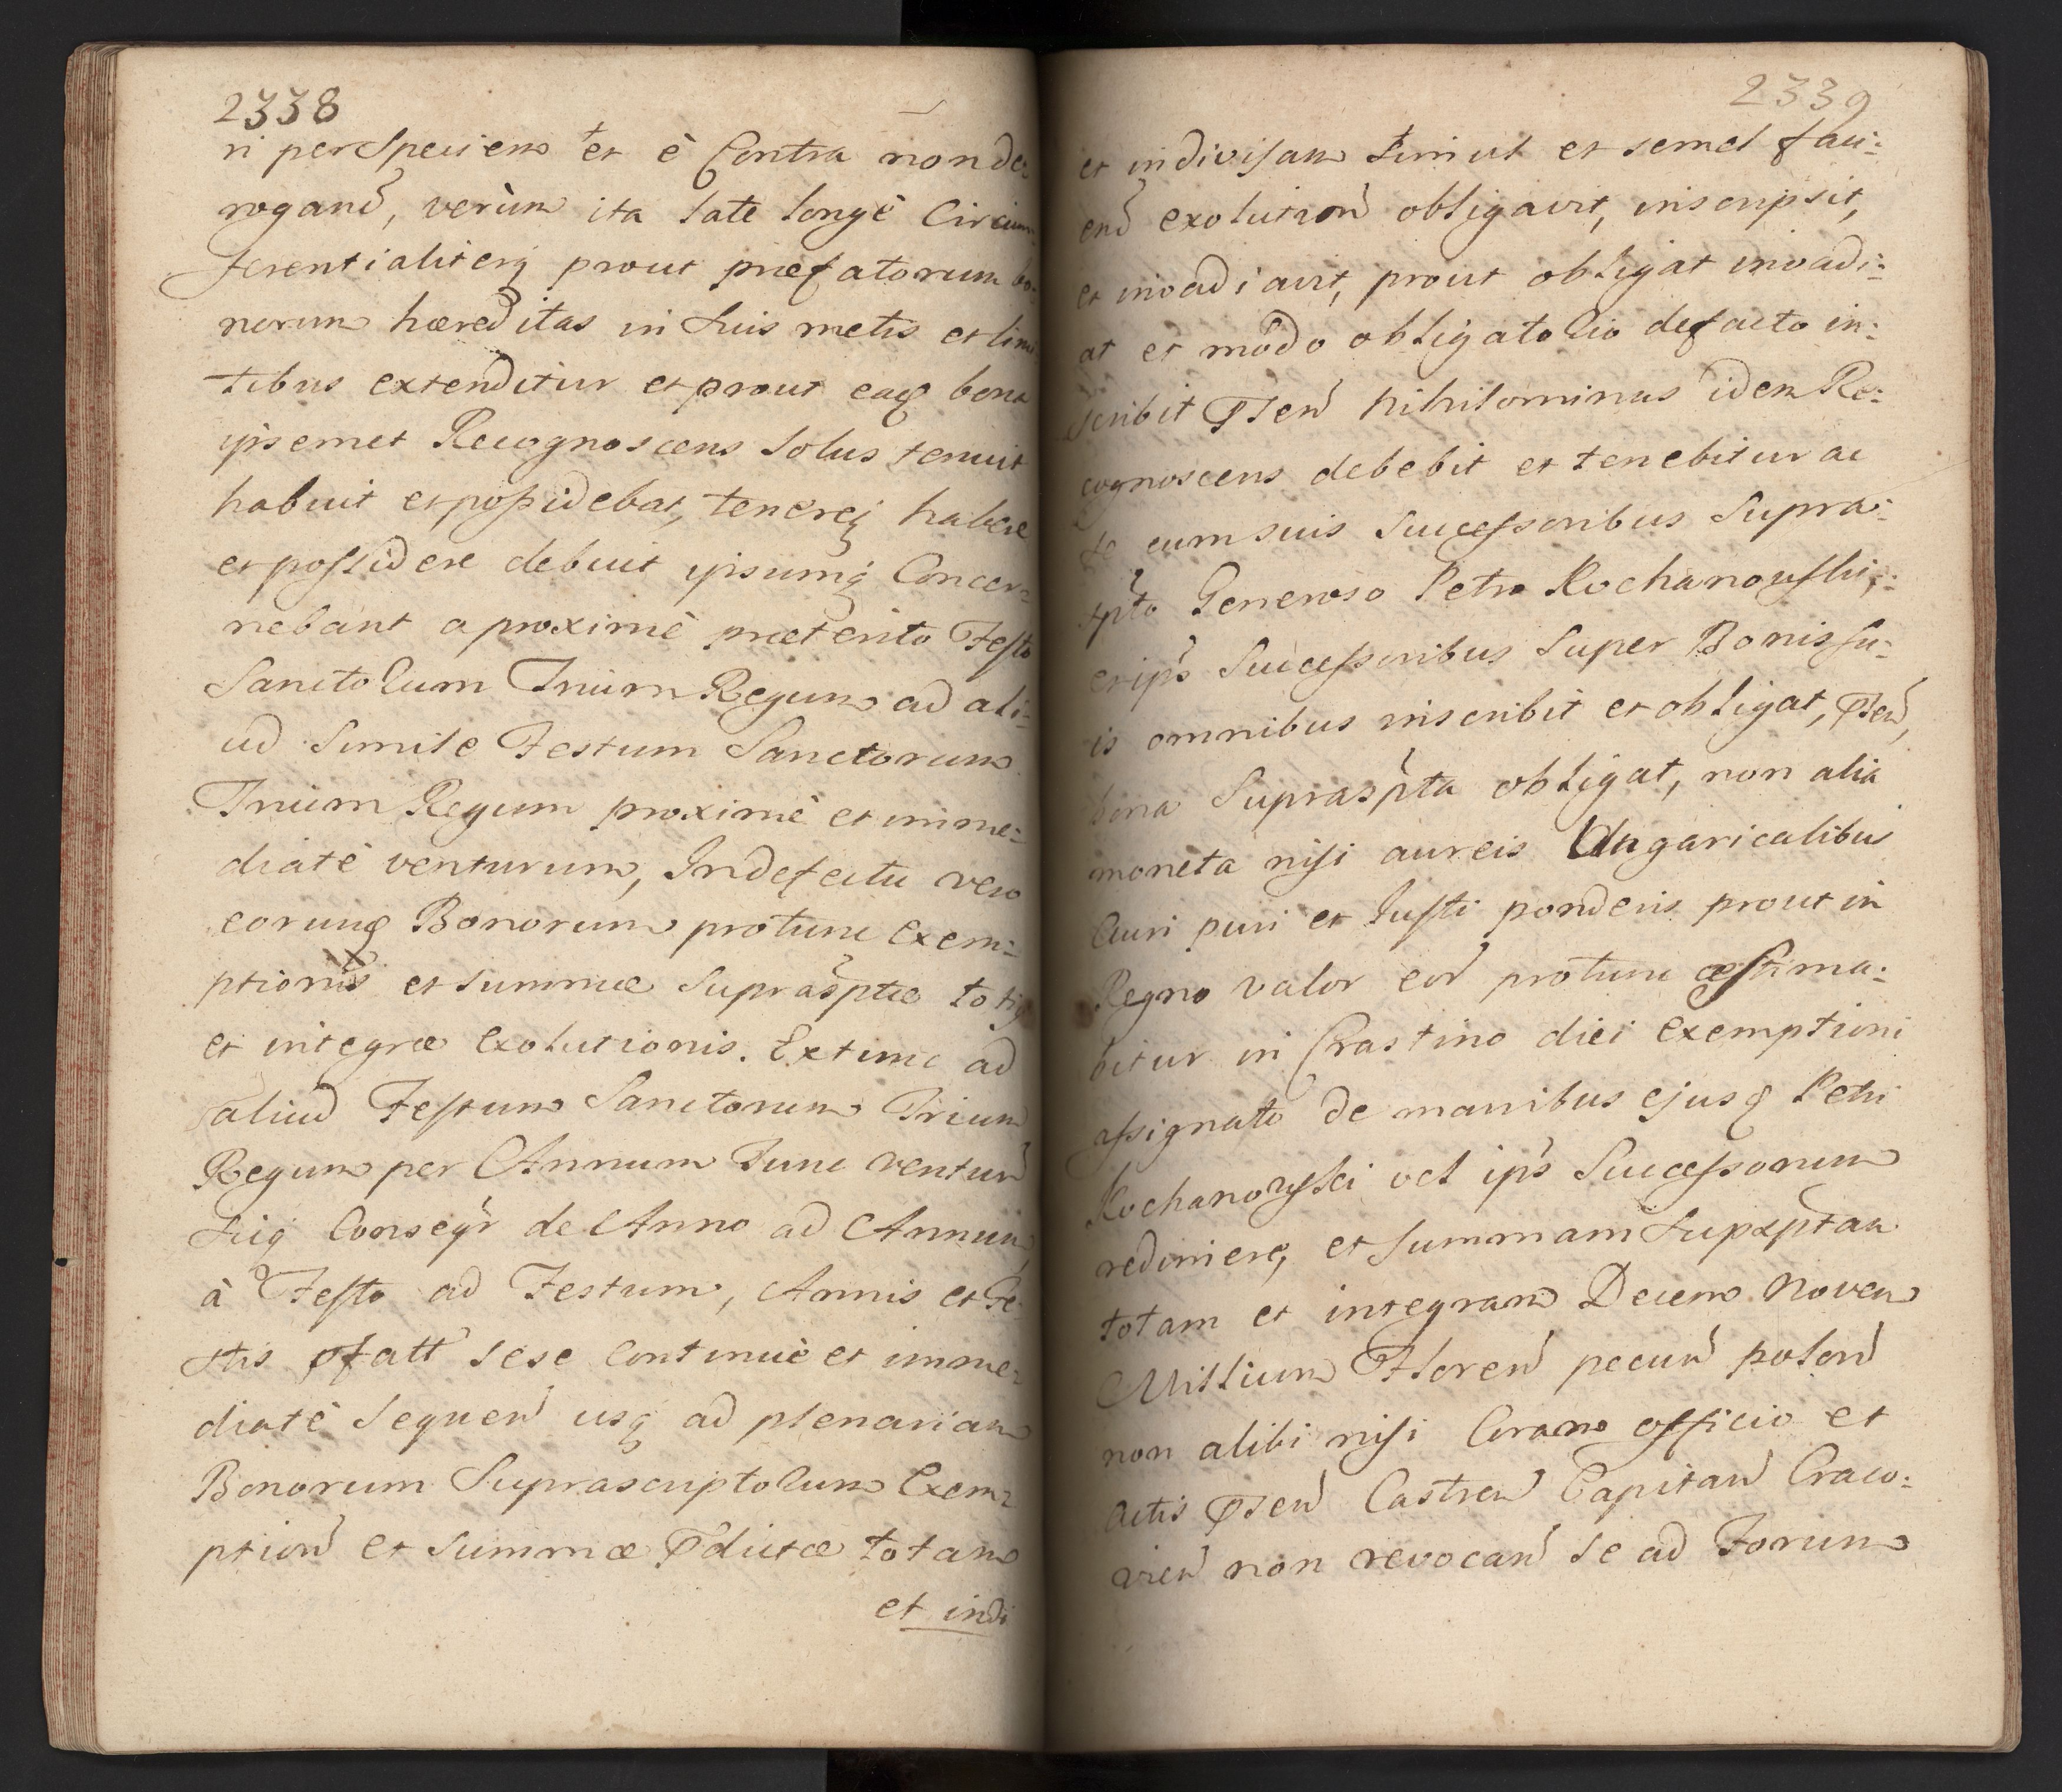 2338
ri per Speciem et è Contra non de:
rogand, verùm ita late longè Circum:
ferentialiterq prout praefatorum bo:
norum haereditas in Suis metis et limi:
tibus extenditur et prout eadq bona
ipsemet Recognoscens Solus tenuit
habuit et possidebat, tenereq habere
et possidere debuit ipsumq Concer:
nebant a proximè praeterito Festo
Sanctorum Trium Regum ad ali:
ud Simile Festum Sanctorum
Trium Regum proximè et imme:
diatè venturum, In defectu vero
eorundq Bonorum protunc Exem:
ptionis et Summae Suprasptae totiq
et integrae Exolutionis. Extunc ad
aliud Festum Sanctorum Trium
Regum per Annum Tunc ventur
Sicq Conseqr de Anno ad Annum
à Festo ad Festum, Annis et Fe:
stis pfatt sese Continuè et imme:
diatè Sequen usq ad plenariam
Bonorum Suprascriptorum Exem:
ption et Summae Pdictae totam
et indi
2339
et indivisam Simul et semel faci:
end exolution obligavit, inscripsit,
et invadiavit, prout obligat invadi:
at et modo obligatorio defacto in:
scribit Psen nihilominus idem Re:
cognoscens debebit et tenebitur ac
se cum suis Successoribus Supra:
spto Generoso Petro Kochanowski,
et ips Successoribus Super Bonis su:
is omnibus inscribit et obligat, Psen,
bona Supraspta obligat, non alia
moneta nisi aureis Ungaricalibus
Auri puri et Justi ponderis prout in
Regno valor eor protunc aestima:
bitur in Crastino diei Exemptioni
assignato de manibus ejusd Petri
Kochanowski vel ips Successorum
redimere, et Summam Supsptam
totam et integram Decem Novem
Millium Floren pecun polon
non alibi nisi Coram officio et
Actis Psen Castren Capitan Craco:
vien non revocan Se ad Forum